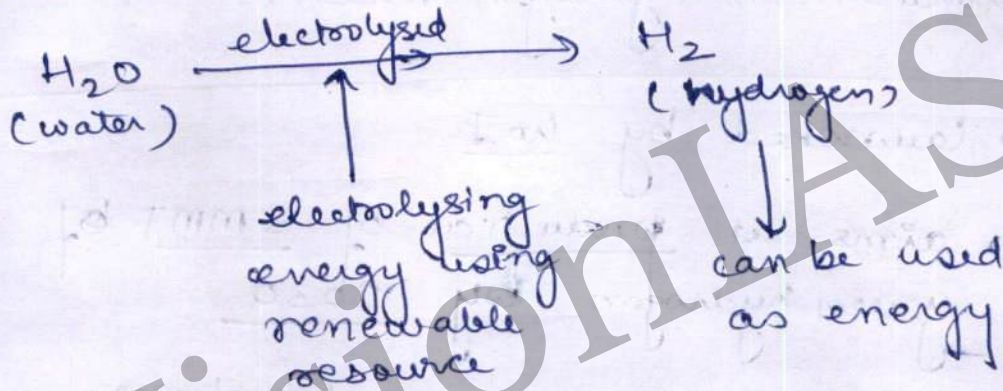 H₂O
(water)
electrolysed
H₂
(hydrogen)
electrolysing
energy using
renewable
resource
can be used
as energy
VisionIAS